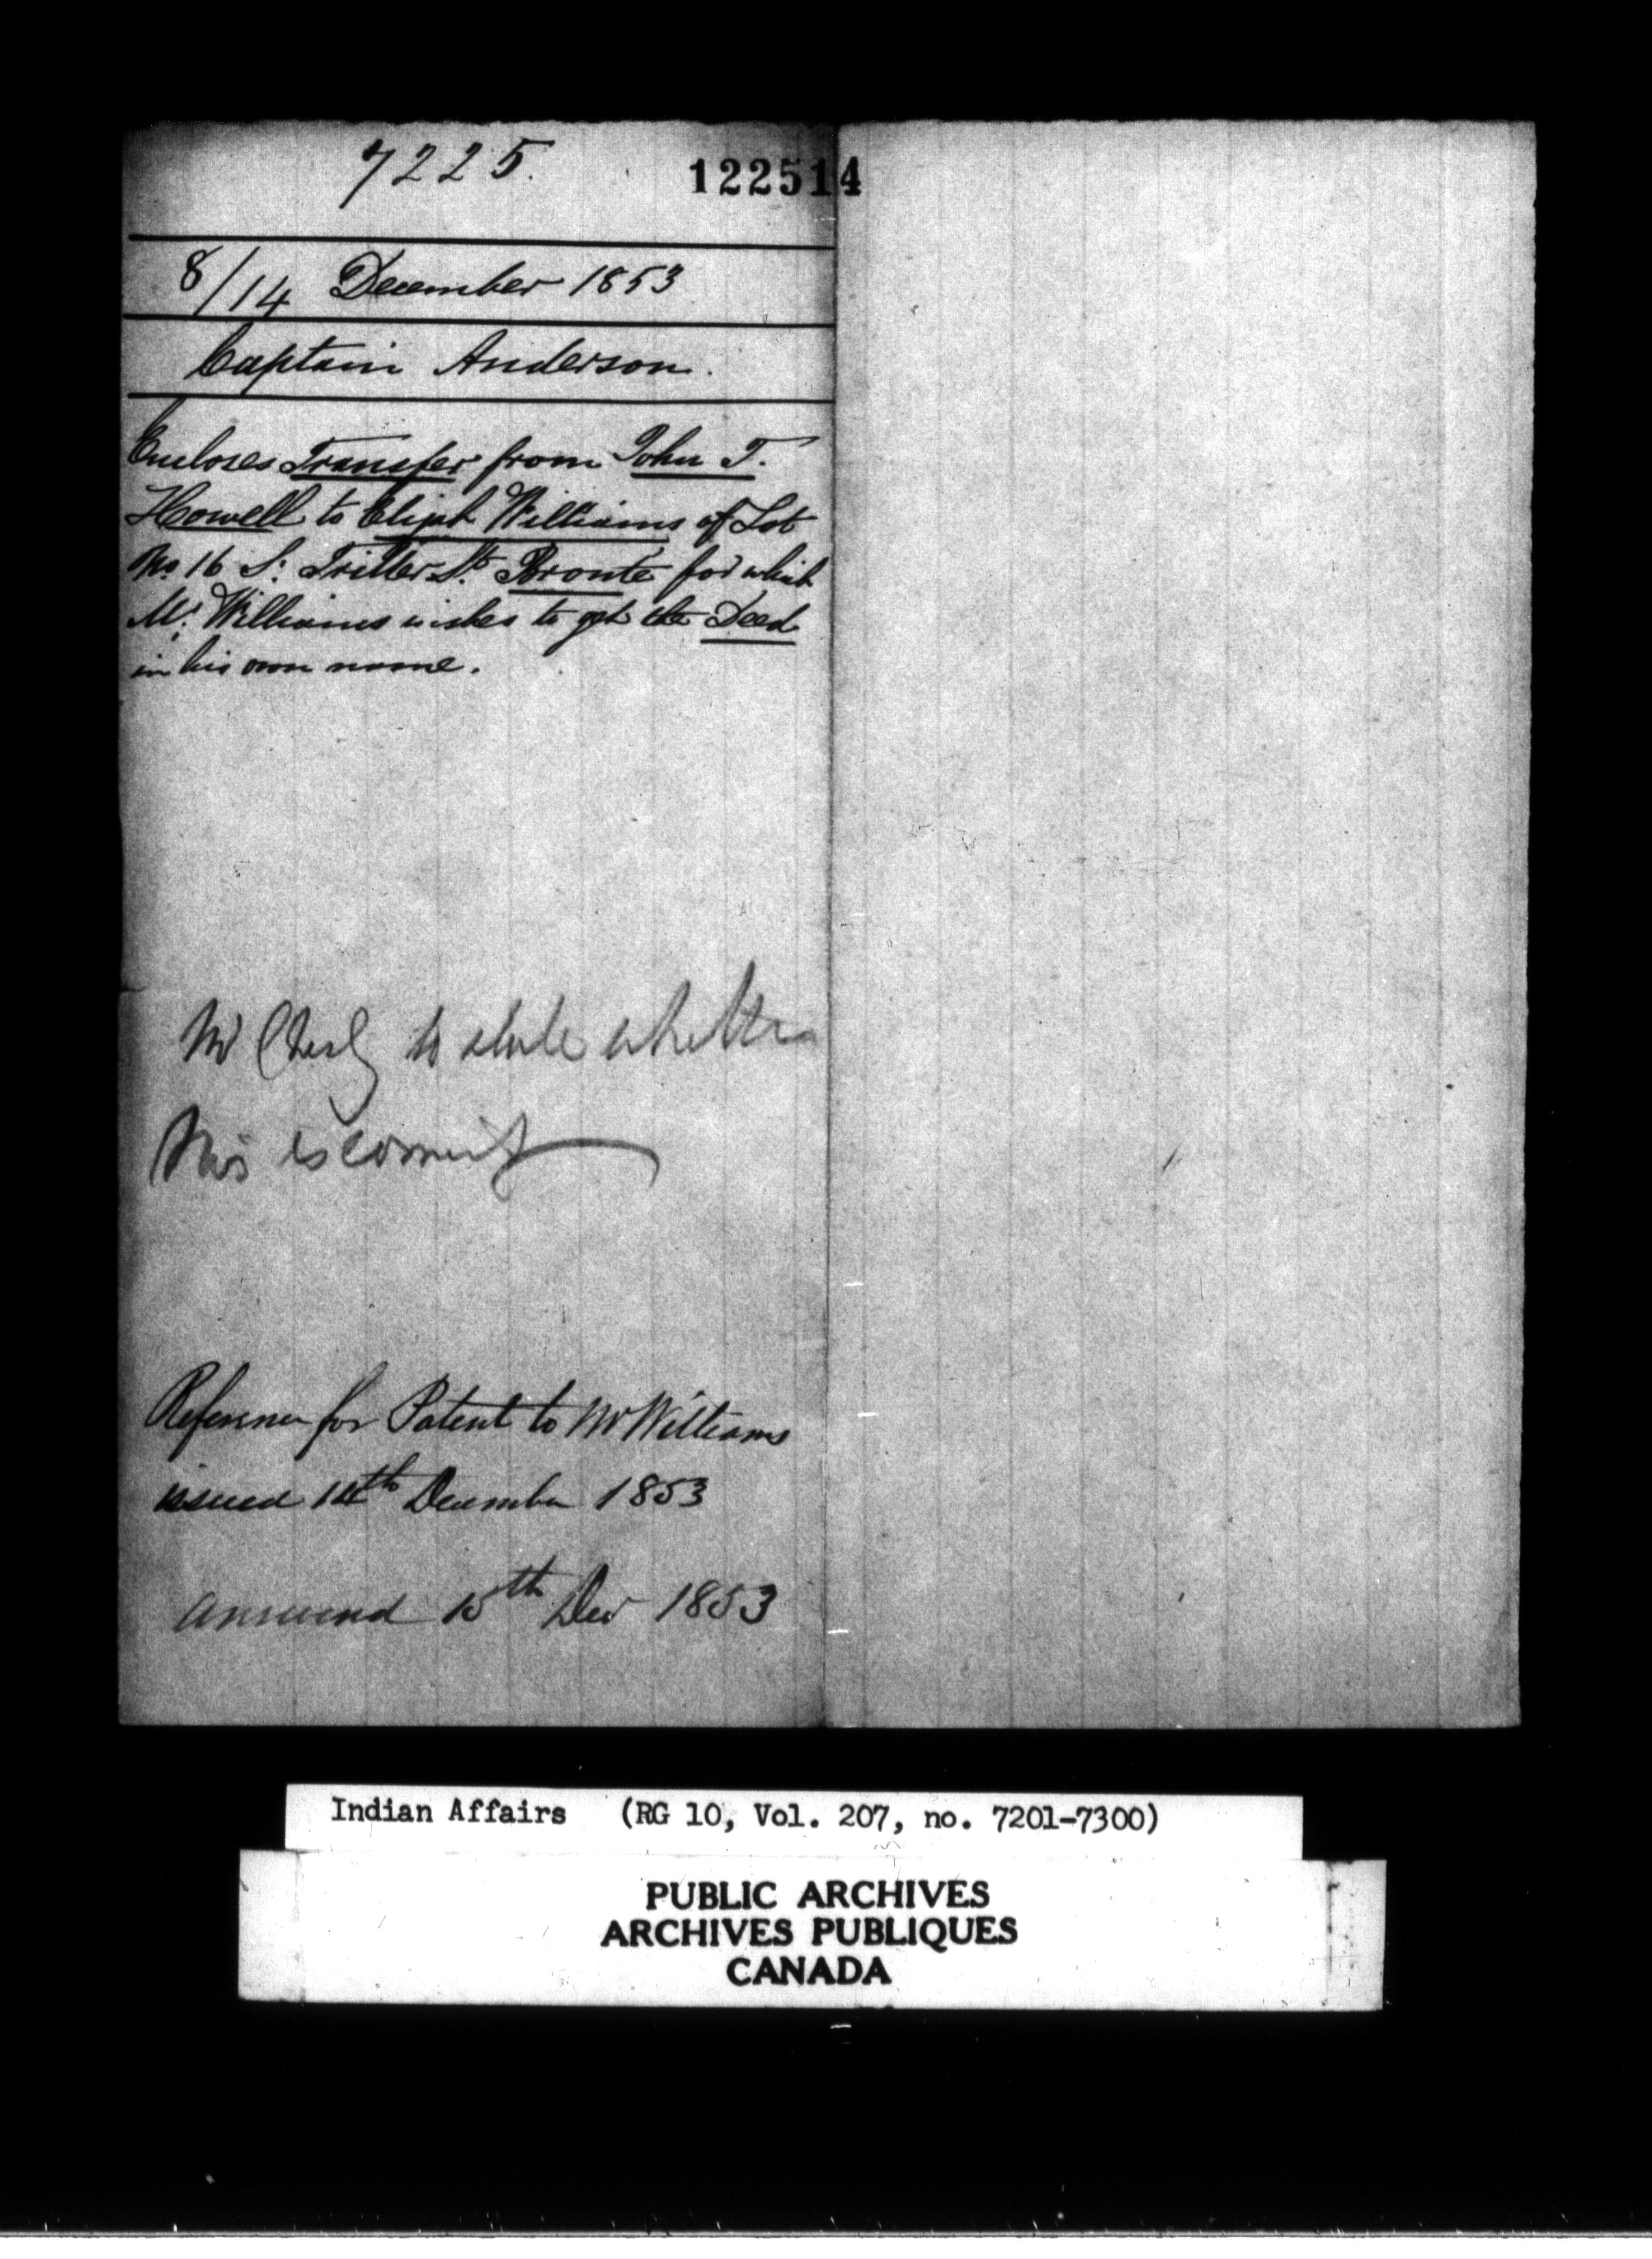 7225.
122514
8/14 December 1853
Captain Anderson.
Encloses Transfer from John T.
Howell to Elijah Williams of Lot
No. 16 S: Triller St. Bronte for which
Mr. Williams wishes to get the Deed
in his own name.
Mr to state whether
this is correct
Reference for Patent to Mr Williams
issued 14th December 1853
answered 15th Decr 1853
Indian Affairs (RG 10, Vol. 207, no. 7201-7300)
PUBLIC ARCHIVES
ARCHIVES PUBLIQUES
CANADA